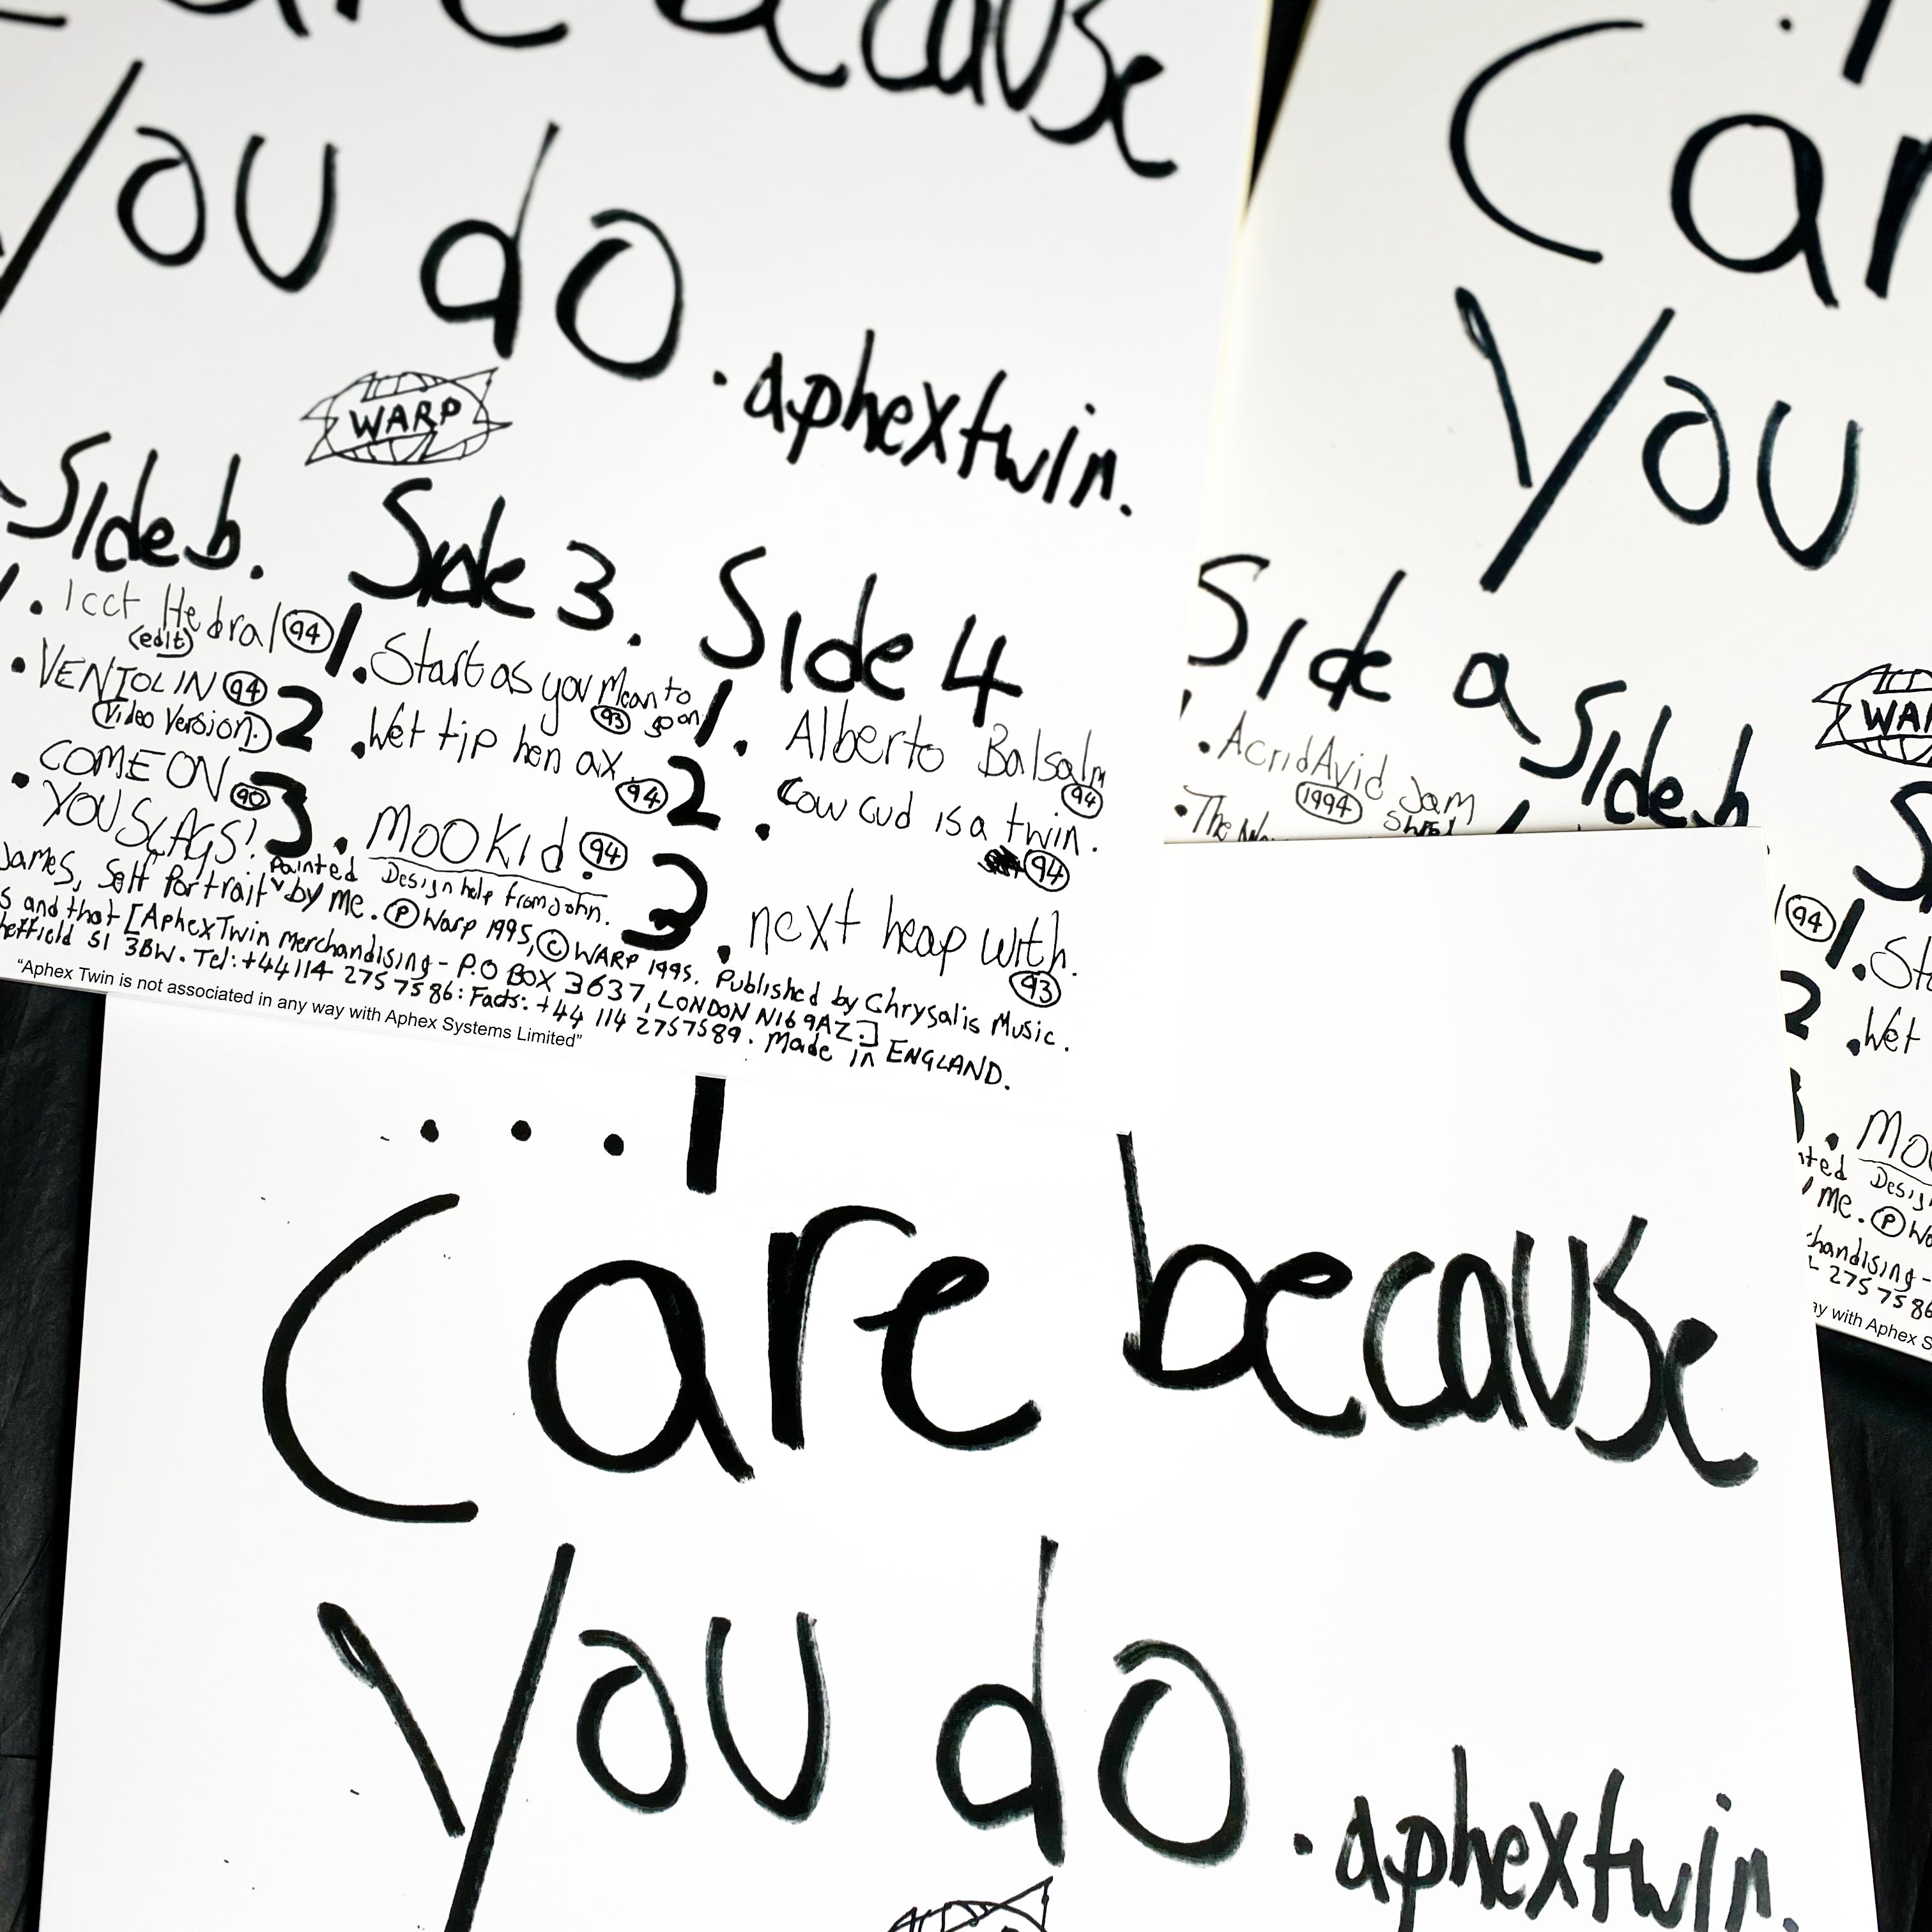 care because
you do
. aphextwin.
WARP
Side b.
1. Icct Hedral 94
(edit)
. VENTOLIN 94
(Video Version.)
. COME ON
YOU SLAGS! 90
Side 3.
1. Start as you Mean to
go on 93
2 . Wet tip hen ax. 94
3 . MOOKid. 94
Design help from John.
Side 4
1. Alberto Balsalm
94
2. Cow cud is a twin.
94
3. next heap with.
93
James, Self Portrait painted by me. Ⓟ Warp 1995, © WARP 1995. Published by Chrysalis Music.
s and that [AphexTwin Merchandising - P.O BOX 3637, LONDON N16 9AZ.]
heffield S1 3BW. Tel: +44 114 275 7586: Facts: +44 114 2757589. Made in ENGLAND.
“Aphex Twin is not associated in any way with Aphex Systems Limited”
. I
Car
you
Side a
1
. AcridAvid Jam
Shred
1994
. The
Side b
WAR
94
1. Sta
2 . Wet
3 . MOO
nted Desig
me. Ⓟ Wa
chandising -
275 7586
ay with Aphex S
. . . I
Care because
you do
. aphextwin.